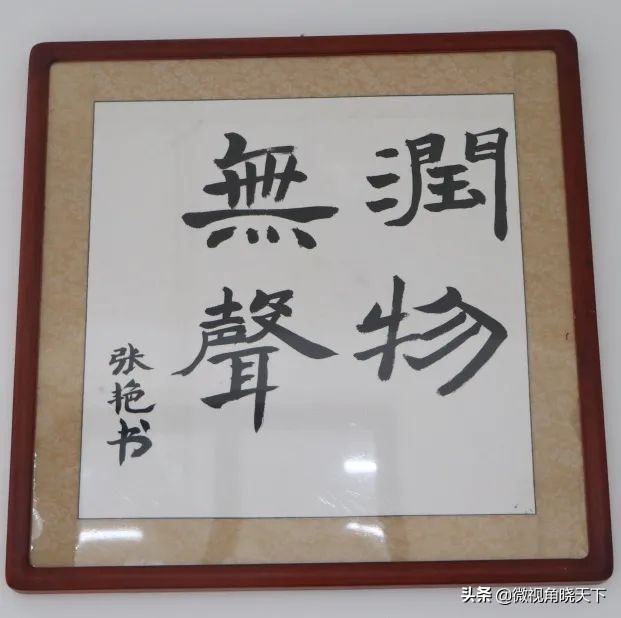 潤物
無聲
张艳书
头条 @微视角晓天下